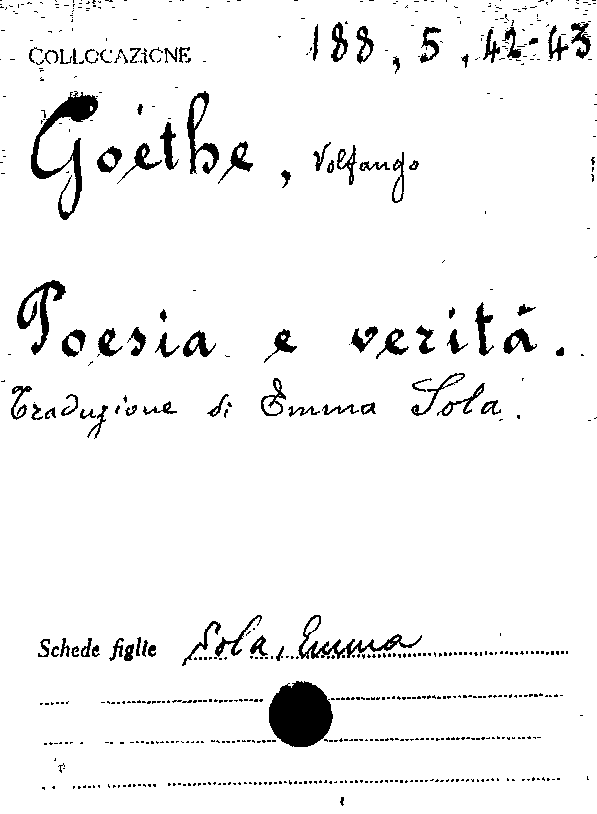 COLLOCAZIONE 188, 5, 42-43
Goethe, Volfango
Poesia e verità.
Traduzione di Emma Sola.
Schede figlie Sola, Emma